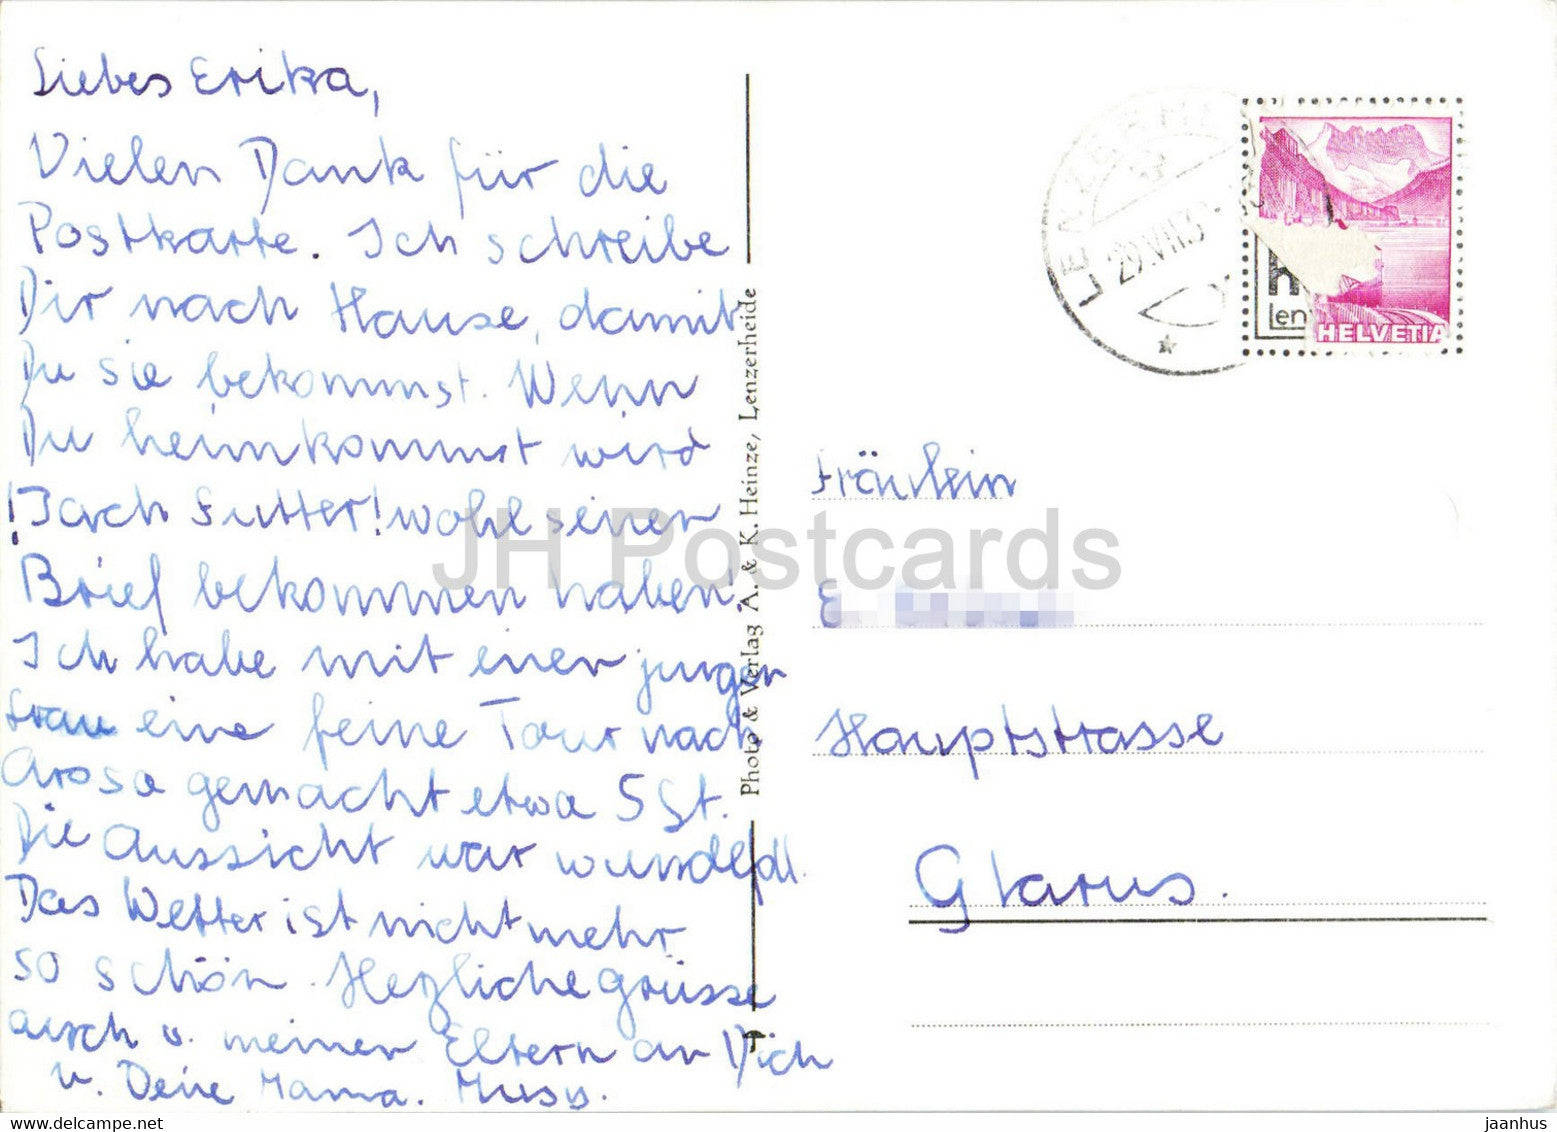 Liebes Erika,
Vielen Dank für die
Postkarte. Ich schreibe
Dir nach Hause, damit
Du sie bekommst. Wenn
Du heimkommst wird
! Sutter! wohl seinen
Brief bekommen haben!
Ich habe mit einer jungen
Frau eine feine Tour nach
Arosa gemacht etwa 5 St.
Die Aussicht war
Das Wetter ist nicht mehr
so schön. Herzliche Grüsse
auch v. meinen Eltern an Dich
u. Deine Mama.
Photo & Verlag A. & K. Heinze, Lenzerheide
LENZERHE
29.VIII.3
HELVETIA
len
Fräulein
E.
Hauptstrasse
Glarus.
JH Postcards
jaanhus
delcampe.net